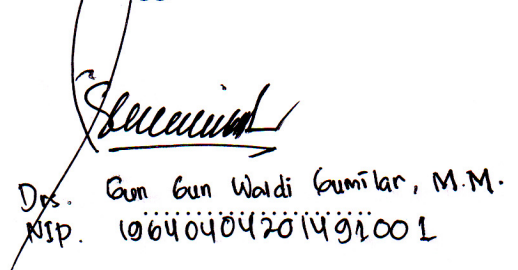 Drs. Gun Gun Waldi Gumilar, M.M.
NIP. 19640404201491001